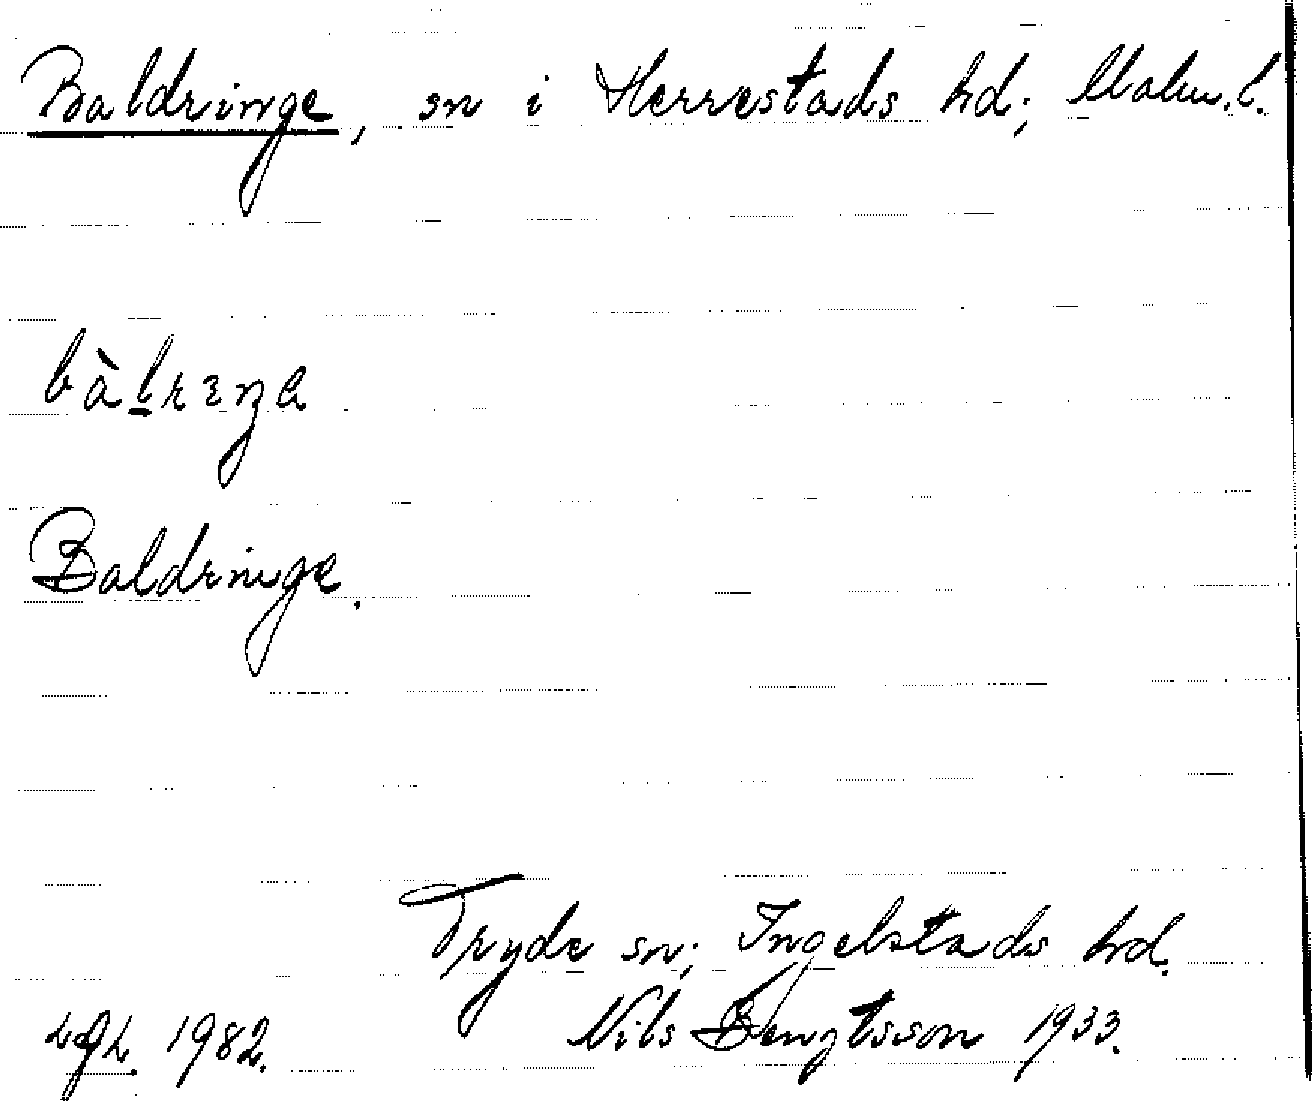 Baldringe, sn i Herrestads hd; Malm. l.
Baldringe.
Tryde sn; Ingelstads hd.
1982. Nils Bengtsson 1933.